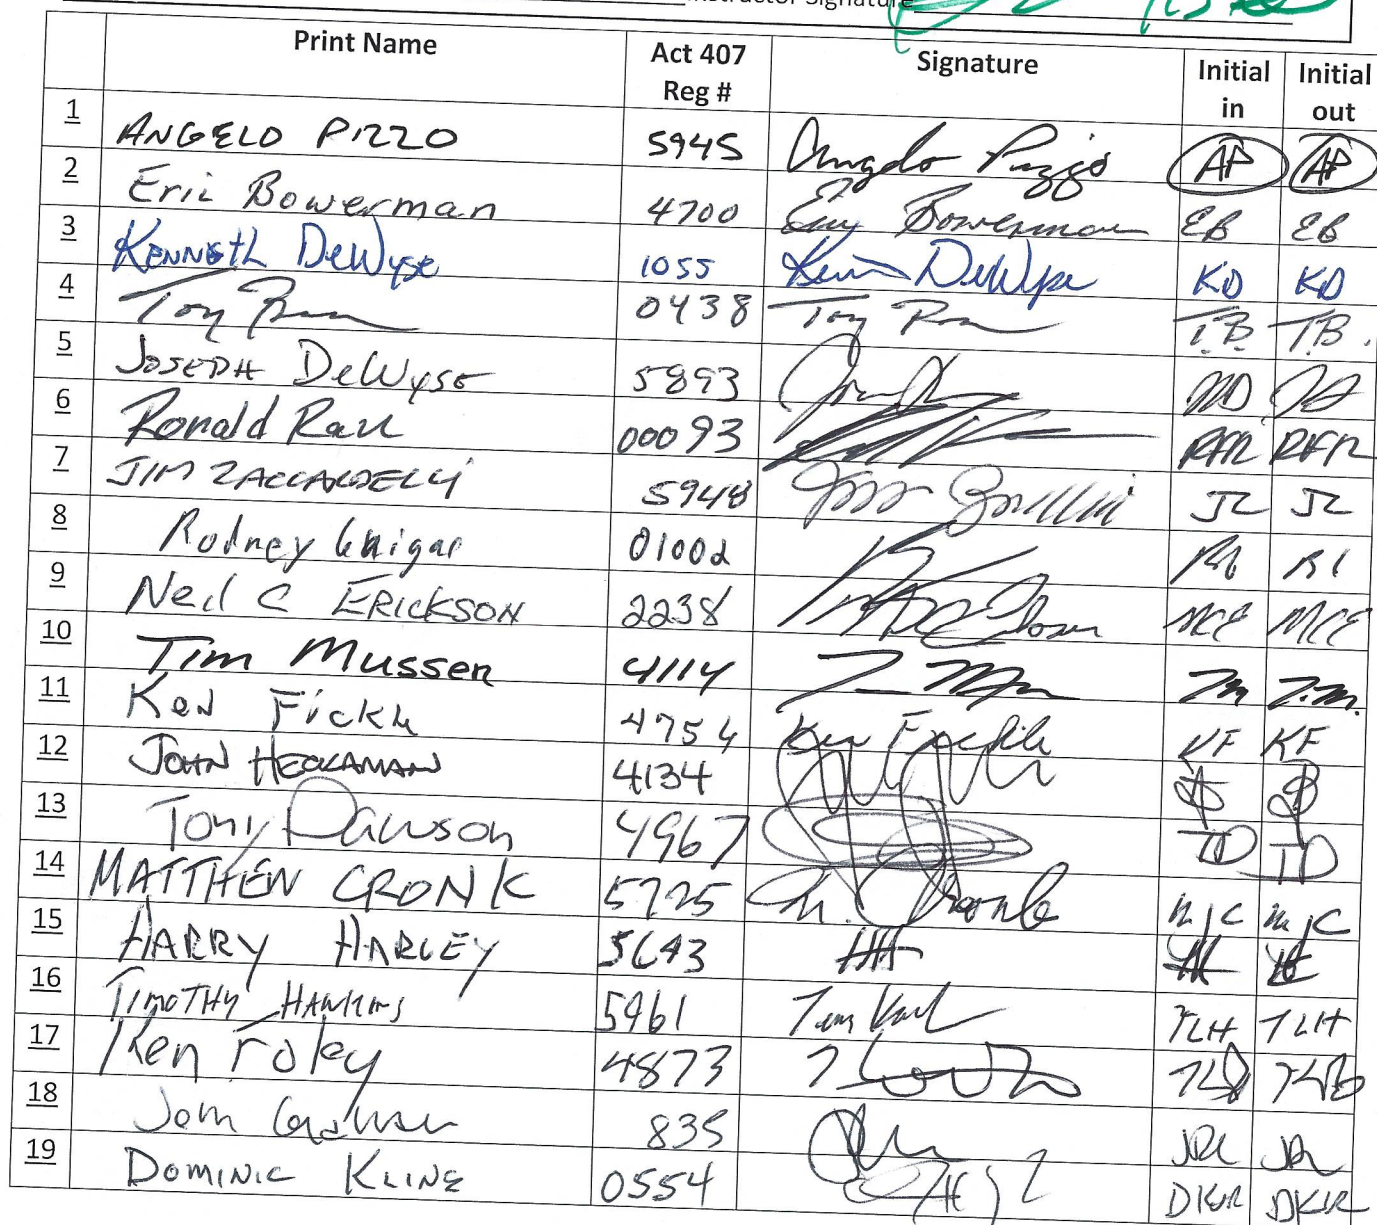 Instructor Signature
Print Name Act 407 Reg # Signature Initial in Initial out
1 ANGELO PIZZO 5945 Angelo Pizzo AP AP
2 Eric Bowerman 4700 Eric Bowerman EB EB
3 KENNETH DeWyse 1055 DeWyse KD KD
4 Tony 0438 Tony T.B. T.B.
5 JOSEPH DeWyse 5893 JD JD
6 Ronald Rau 00093 RFR RFR
7 JIM ZACCARDELLI 5948 JZ JZ
8 Rodney 01002
9 Neil C ERICKSON 2238 NCE NCE
10 Tim Mussen 4114 TM T.M.
11 Ken Fickle 4754 Ken Fickle KF KF
12 JOHN HECKAMAN 4134
13 Tony Dawson 4967 TD TD
14 MATTHEW CRONK 5725 M. Cronk MJC MJC
15 HARRY HARLEY 5643 HH
16 TIMOTHY HAWKINS 5961 TLH TLH
17 Ken roley 4873
18 835
19 DOMINIC KLINE 0554 DKJR DKJR